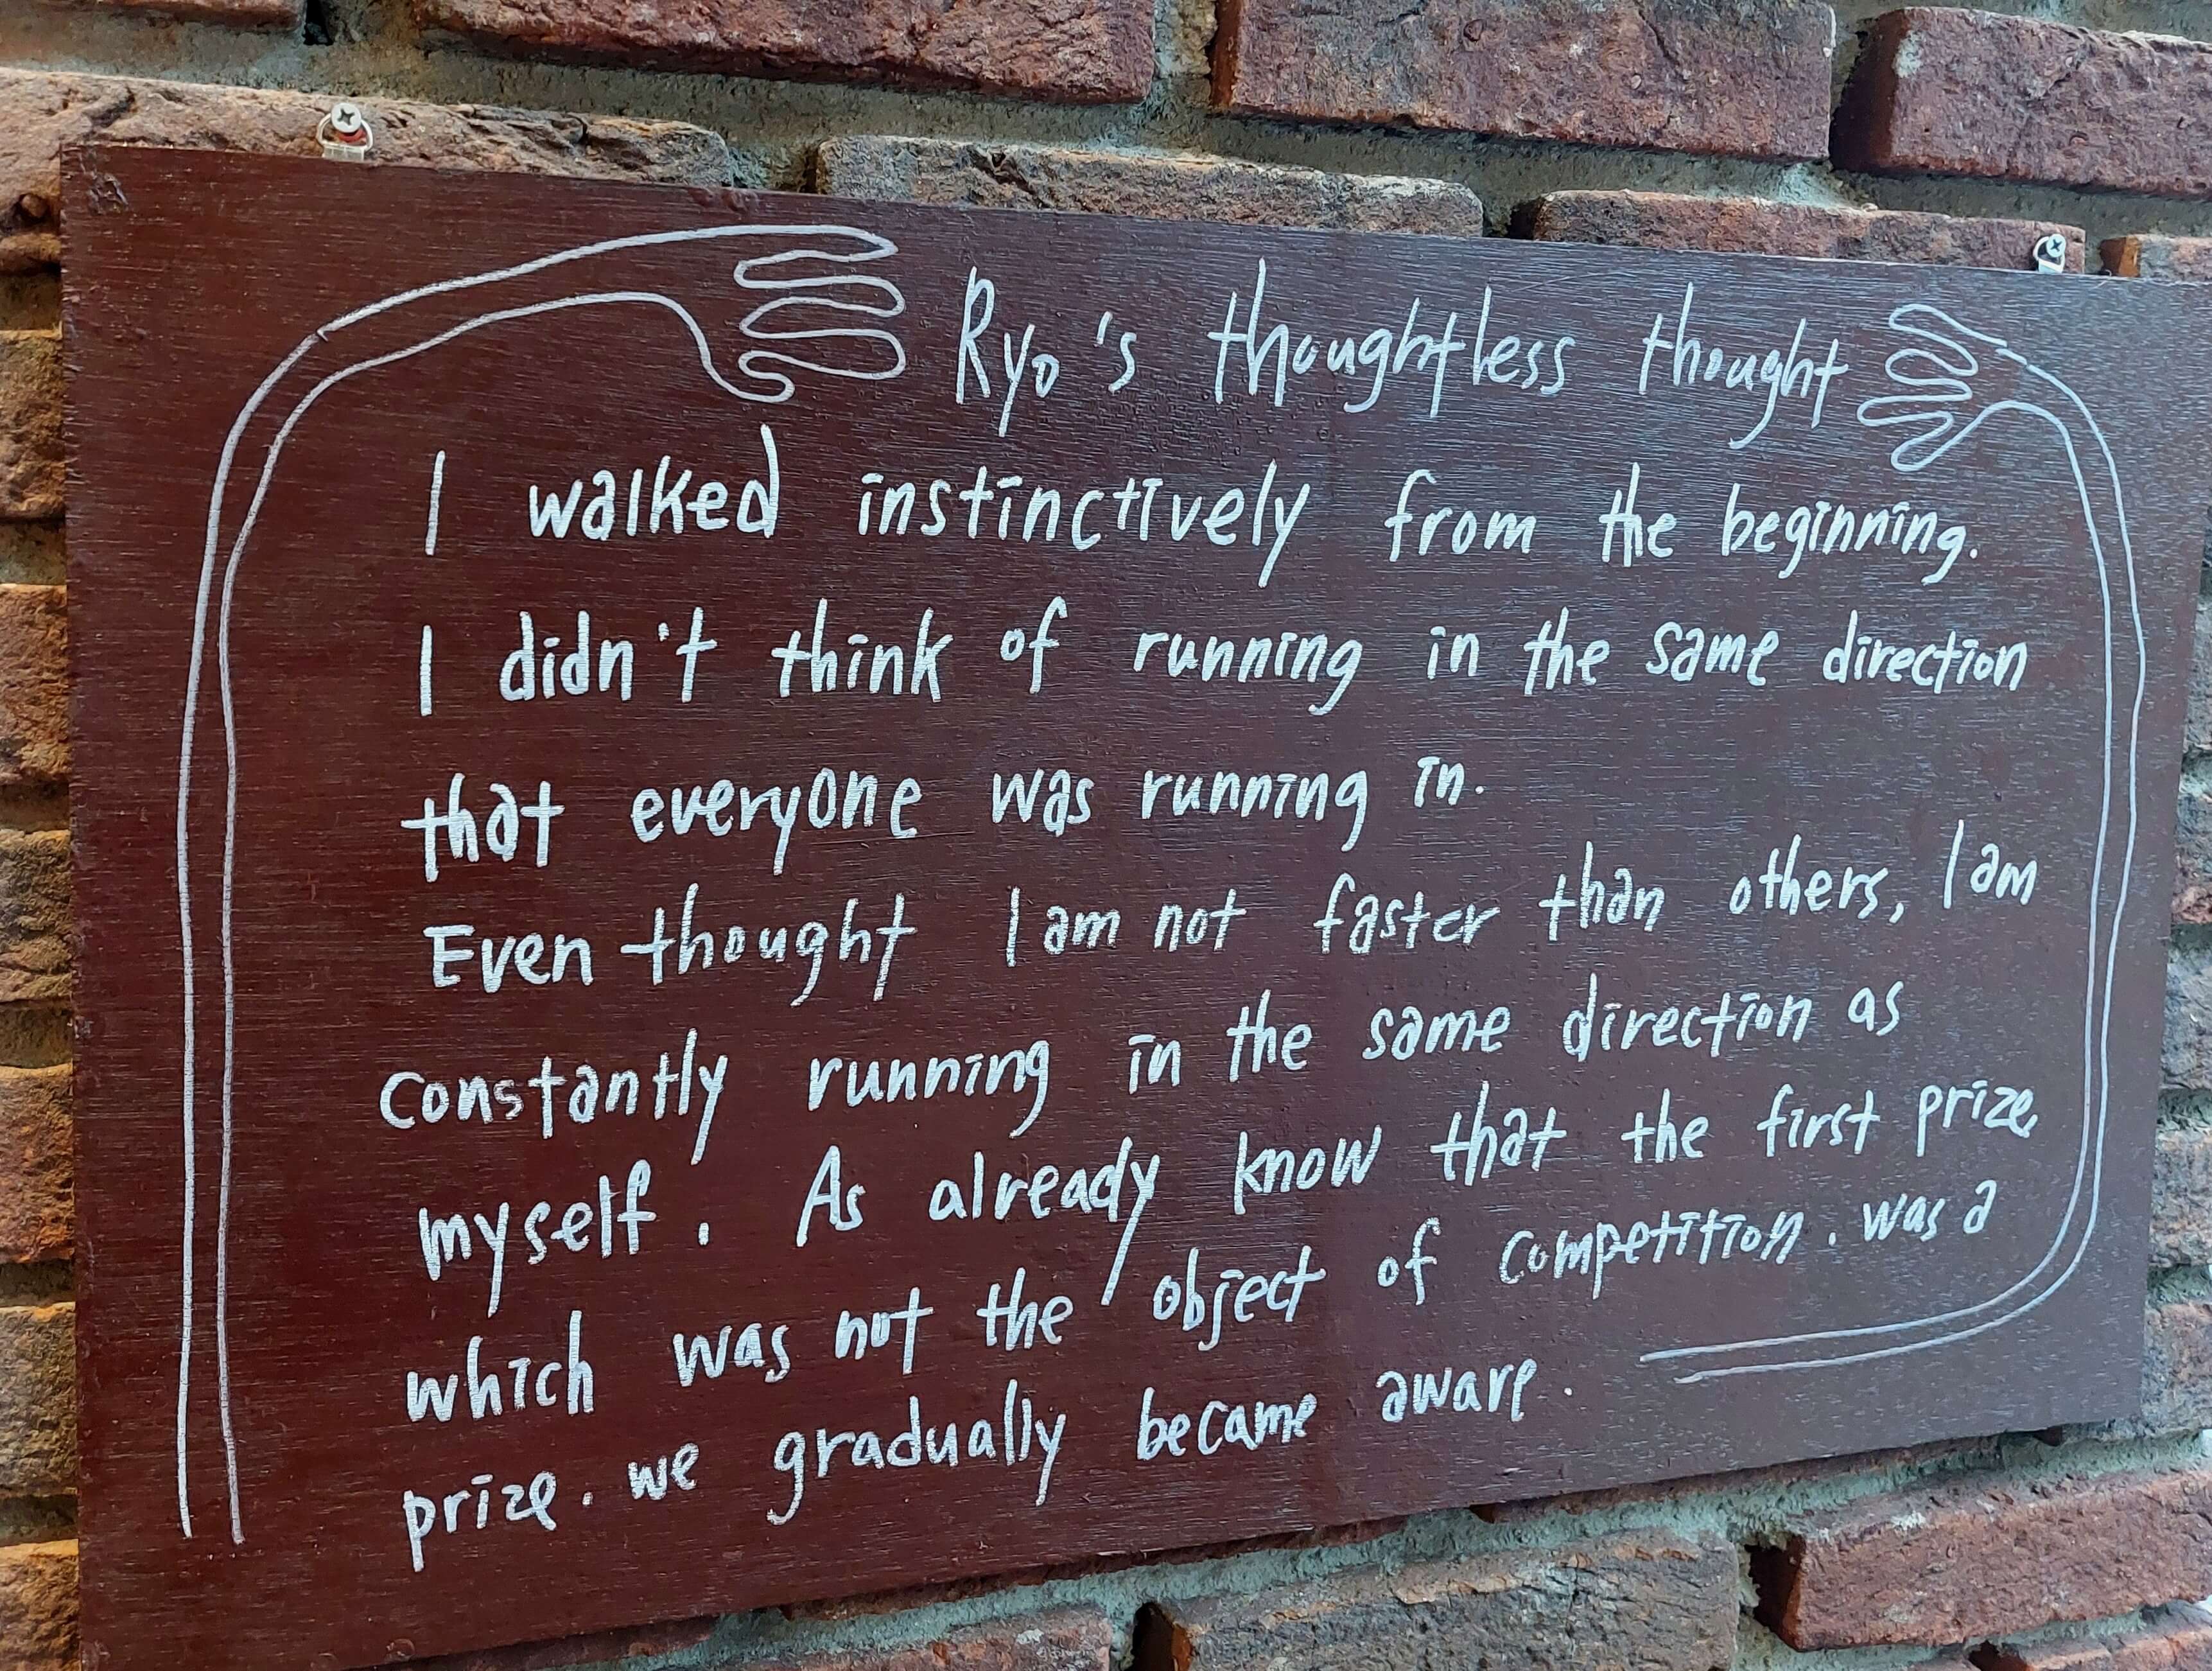 Ryo's thoughtless thought
I walked instinctively from the beginning.
I didn't think of running in the same direction
that everyone was running in.
Even thought I am not faster than others, I am
constantly running in the same direction as
myself. As already know that the first prize
which was not the object of competition. was a
prize. we gradually became aware.